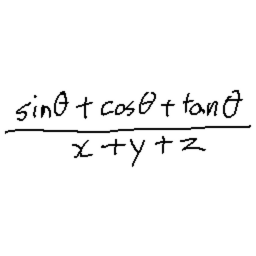 sinθ + cosθ + tanθ
x + y + z